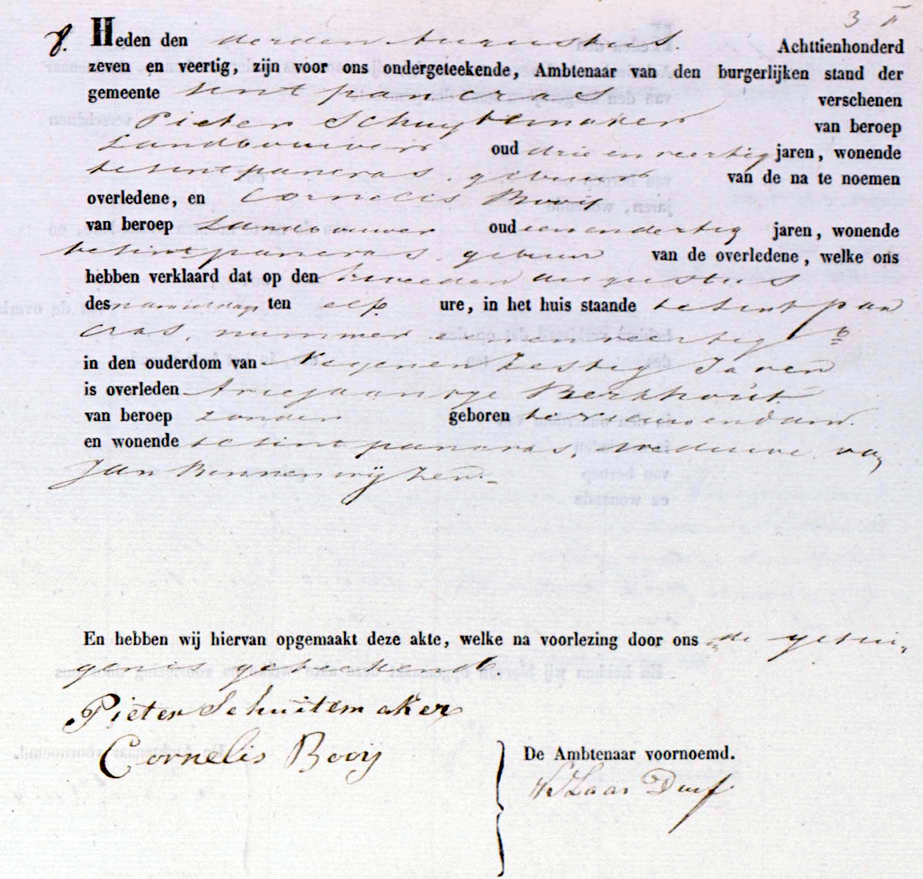 8. Heden den derden Augustus Achttienhonderd
zeven en veertig, zijn voor ons ondergeteekende, Ambtenaar van den burgerlijken stand der
gemeente sint pancras verschenen
Pieter Schuytemaker van beroep
Landbouwer oud drie en veertig jaren, wonende
te sint pancras. gebuur van de na te noemen
overledene, en Cornelis Booij
van beroep Landbouwer oud een en dertig jaren, wonende
te sint pancras. gebuur van de overledene, welke ons
hebben verklaard dat op den tweeden Augustus
des namiddags ten elf ure, in het huis staande te sint pan
cras, nummer
in den ouderdom van Negen en Zestig Jaren
is overleden Ariejaantje Berkhout
van beroep zonder geboren te
en wonende te sint pancras, weduwe van
Jan
En hebben wij hiervan opgemaakt deze akte, welke na voorlezing door ons de getui-
genis getekend
Pieter Schuitemaker
Cornelis Booij
De Ambtenaar voornoemd.